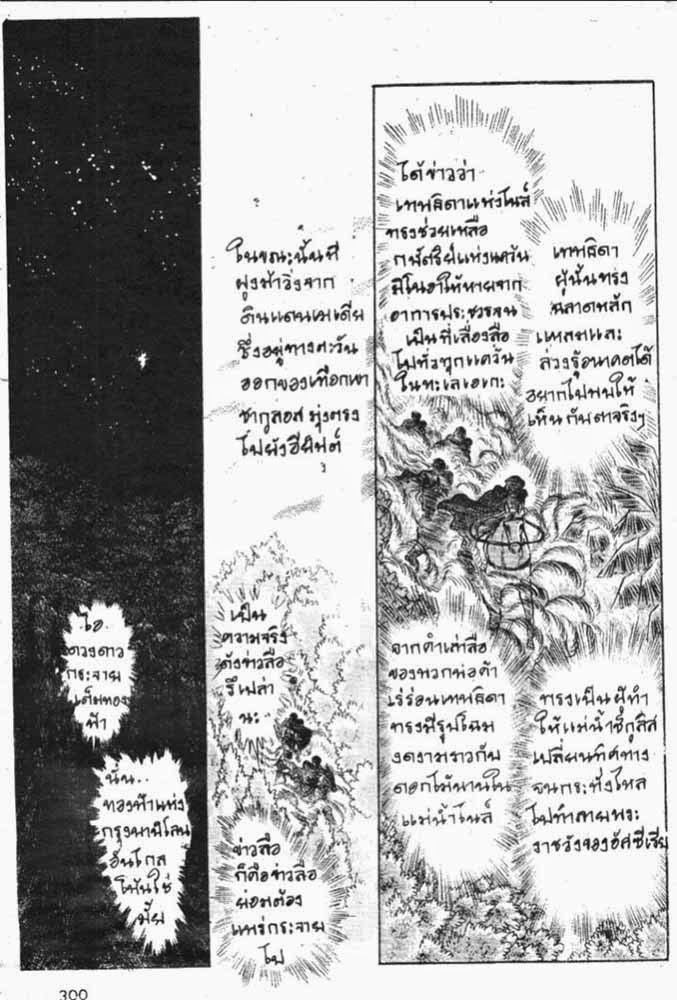 โอ
ดวงดาว
กระจาย
เต็มทอง
ฟ้า
นั่น..
ทองฟ้าแห่ง
กรุงบาบิโลน
อันไกล
โพ้นใช่
มั้ย
ในขณะนั้นมี
ฝูงม้าวิ่งจาก
ดินแดนเมเดีย
ซึ่งอยู่ทางตะวัน
ออกของเทือกเขา
ซากูลอส มุ่งตรง
ไปยังอียิปต์
เป็น
ความจริง
ดังข่าวลือ
รึเปล่า
นะ
ข่าวลือ
ก็คือข่าวลือ
ย่อมต้อง
แพร่กระจาย
ไป
ได้ข่าวว่า
เทพธิดาแห่งไนล์
ทรงช่วยเหลือ
กษัตริย์แห่งแคว้น
มิโนอาให้หายจาก
อาการประชวรจน
เป็นที่เลื่องลือ
ไปทั่วทุกแคว้น
ในทะเลเอเกะ
เทพธิดา
ผู้นั้นทรง
ฉลาดหลัก
แหลมและ
ล่วงรู้อนาคตได้
อยากไปพบให้
เห็นกับตาจริงๆ
จากคำเล่าลือ
ของพวกพ่อค้า
เร่ร่อนเทพธิดา
ทรงมีรูปโฉม
งดงามราวกับ
ดอกไม้บานใน
แม่น้ำไนล์
ทรงเป็นผู้ทำ
ให้แม่น้ำชีกูลิส
เปลี่ยนทิศทาง
จนกระทั่งไหล
ไปทำลายพระ
ราชวังของอัศซีเรีย
300